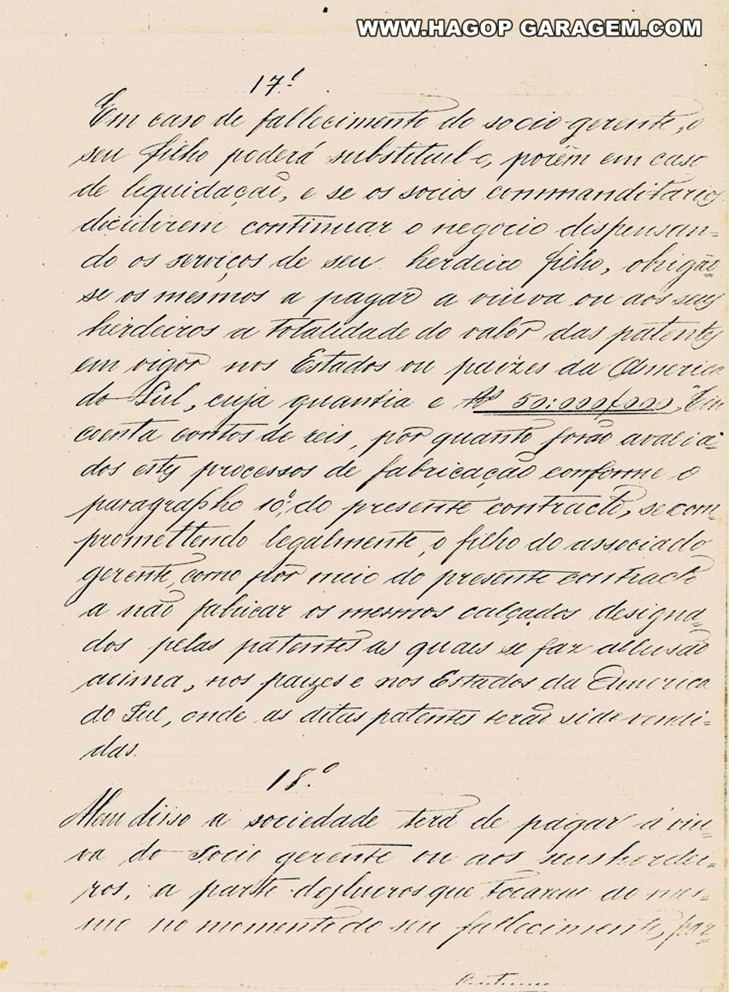 WWW.HAGOP GARAGEM.COM
17.º
Em caso de fallecimento do socio gerente, o
seu filho poderá substituil-o, porêm em caso
de liquidação, e se os socios commanditarios
dicidirem continuar o negocio dispensan-
do os serviços de seu herdeiro filho, obrigão
se os mesmos a pagar a viuva ou aos seus
herdeiros a totalidade do valor das patentes
em vigor nos Estados ou paizes da America
do Sul, cuja quantia e Rs 50:000$000, Cin
coenta contos de reis, por quanto forão avalia-
dos estes processos de fabricação conforme o
paragrapho 10.º do presente contracto, se com-
promettendo legalmente, o filho do associado
gerente, como por meio do presente contracto
a não fabricar os mesmos calçados designa-
dos pelas patentes as quais se faz allusão
acima, nos paizes e nos Estados da America
do Sul, onde as ditas patentes terão sido vendi-
das.
18.º
Alem disso a sociedade terá de pagar á viu-
va do socio gerente ou aos seus herdei-
ros, a parte dos lucros que tocarem ao mes-
mo no momento do seu fallecimento, par-